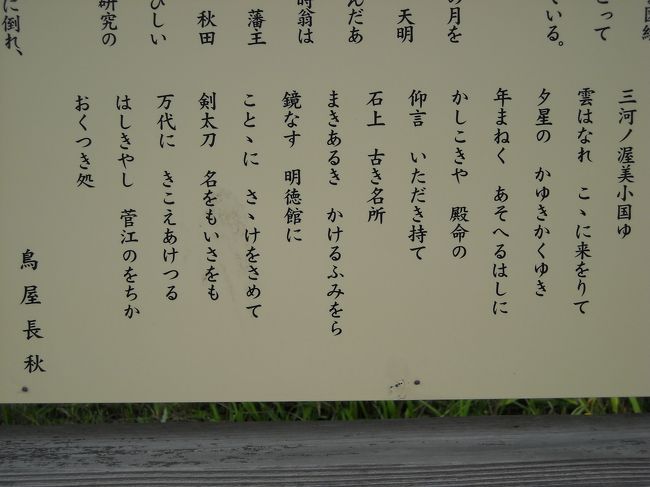 とって
ている。
の月を
天明
んだあ
時翁は
藩主
秋田
びしい
研究の
に倒れ、
三河ノ渥美小国ゆ
雲はなれ こゝに来をりて
夕星の かゆきかくゆき
年まねく あそへるはしに
かしこきや 殿命の
仰言 いただき持て
石上 古き名所
まきあるき かけるふみをら
鏡なす 明徳館に
ことゝに さゝけをさめて
剣太刀 名をもいさをも
万代に きこえあけつる
はしきやし 菅江のをちか
おくつき処
鳥屋長秋